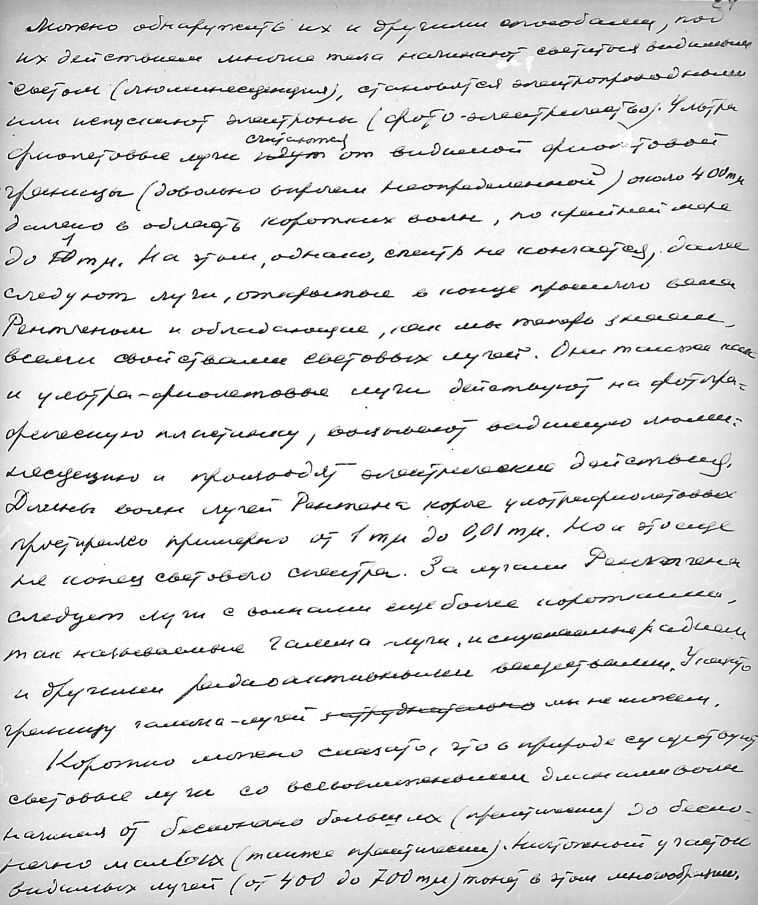 Можно обнаружить их и другими способами, под
их действием многие тела начинают светиться видимым
светом (люминесценция), становятся электропроводными
или испускают электроны (фото-электричество). Ультра
фиолетовые лучи считаются идут от видимой фиолетовой
границы (довольно впрочем неопределенной) около 400 mμ
далеко в область коротких волн, по крайней мере
до 1 mμ. На этом, однако, спектр не кончается, далее
следуют лучи, открытые в конце прошлого века
Рентгеном и обладающие, как мы теперь знаем,
всеми свойствами световых лучей. Они также как
и ультра-фиолетовые лучи действуют на фотогра-
фическую пластинку, вызывают видимую люми-
несценцию и производят электрические действия.
Длины волн лучей Рентгена короче ультрафиолетовых
простираясь примерно от 1 mμ до 0,01 mμ. Но и это еще
не конец светового спектра. За лучами Рентгена
следуют лучи с волнами еще более короткими,
так называемые гамма-лучи, испускаемые радием
и другими радиоактивными веществами. Указать
границу гамма-лучей затруднительно мы не можем.
Коротко можно сказать, что в природе существуют
световые лучи со всевозможными длинами волн
начиная от бесконечно больших (практически) до беско-
нечно малых (также практически). Ничтожный участок
видимых лучей (от 400 до 700 mμ) тонет в этом многообразии.